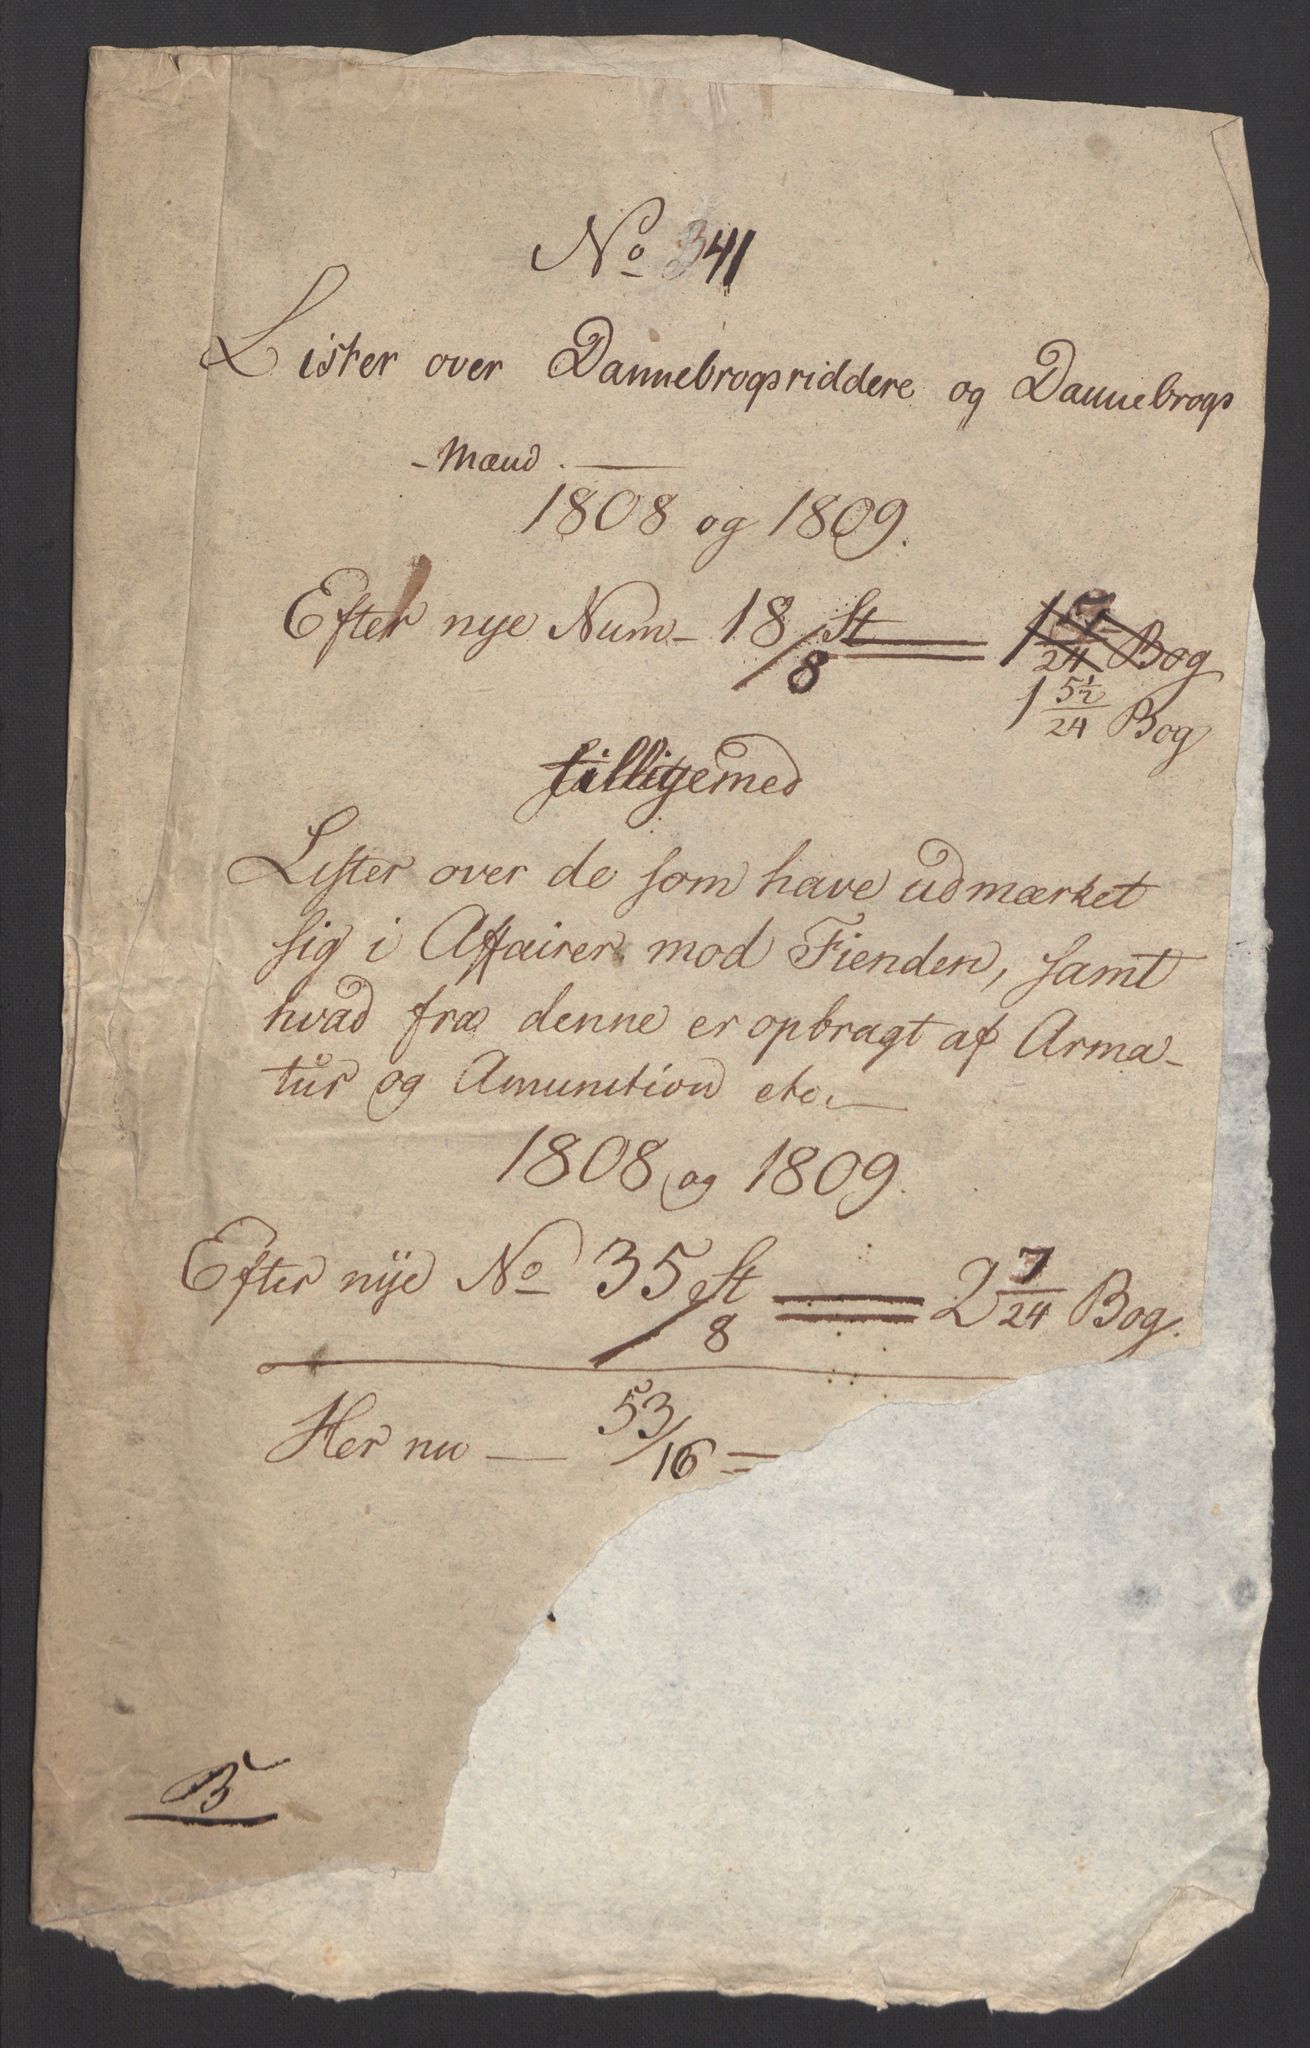 No 341
Lister over Dannebrogsriddere og Dannebrogs
-Mænd.
1808 og 1809.
Efter nye Num- 18/8 St = 1 7/24 Bog
1 5½/24 Bog
tilligemed
Lister over de som have udmærket
sig i Affairer mod Fienden, samt
hvad fra denne er opbragt af Arma-
tur og Amunition etc.
1808 og 1809.
Efter nye No 35/8 St = 2 7/24 Bog.
Her nu — 53/16 =
B